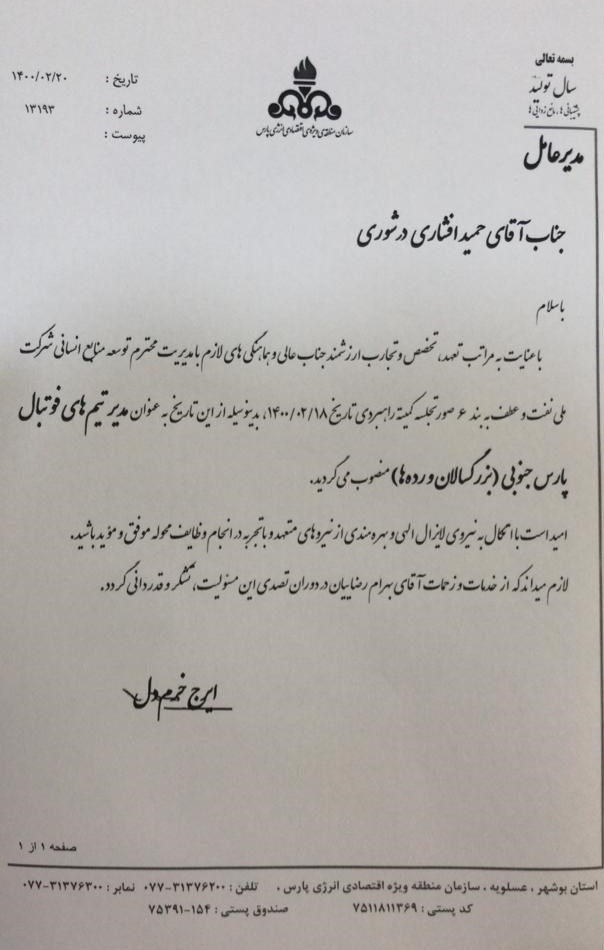 بسمه تعالی
سال تولید
پشتیبانی ها، مانع زدایی ها
تاریخ : ۱۴۰۰/۰۲/۲۰
شماره : ۱۳۱۹۳
پیوست :
سازمان منطقه ی ویژه ی اقتصادی انرژی پارس
مدیرعامل
جناب آقای حمید افشاری درشوری
باسلام
باعنایت به مراتب تعهد، تخصص و تجارب ارزشمند جناب عالی و هماهنگی های لازم با مدیریت محترم توسعه منابع انسانی شرکت
ملی نفت و عطف به بند ۶ صورتجلسه کمیته راهبردی تاریخ ۱۴۰۰/۰۲/۱۸، بدینوسیله از این تاریخ به عنوان مدیر تیم های فوتبال
پارس جنوبی (بزرگسالان و رده ها) منصوب می گردید.
امید است با اتکال به نیروی لایزال الهی و بهره مندی از نیروهای متعهد و باتجربه در انجام وظایف محوله موفق و مؤید باشید.
لازم میداند که از خدمات و زحمات آقای بهرام رضاییان در دوران تصدی این مسئولیت، تشکر و قدردانی گردد.
ایرج خرم دل
صفحه ۱ از ۱
استان بوشهر ، عسلویه ، سازمان منطقه ویژه اقتصادی انرژی پارس ، تلفن : ۳۱۳۷۶۲۰۰-۰۷۷ نمابر : ۳۱۳۷۶۳۰۰-۰۷۷
کد پستی : ۷۵۱۱۸۱۱۳۶۹ صندوق پستی : ۱۵۴-۷۵۳۹۱